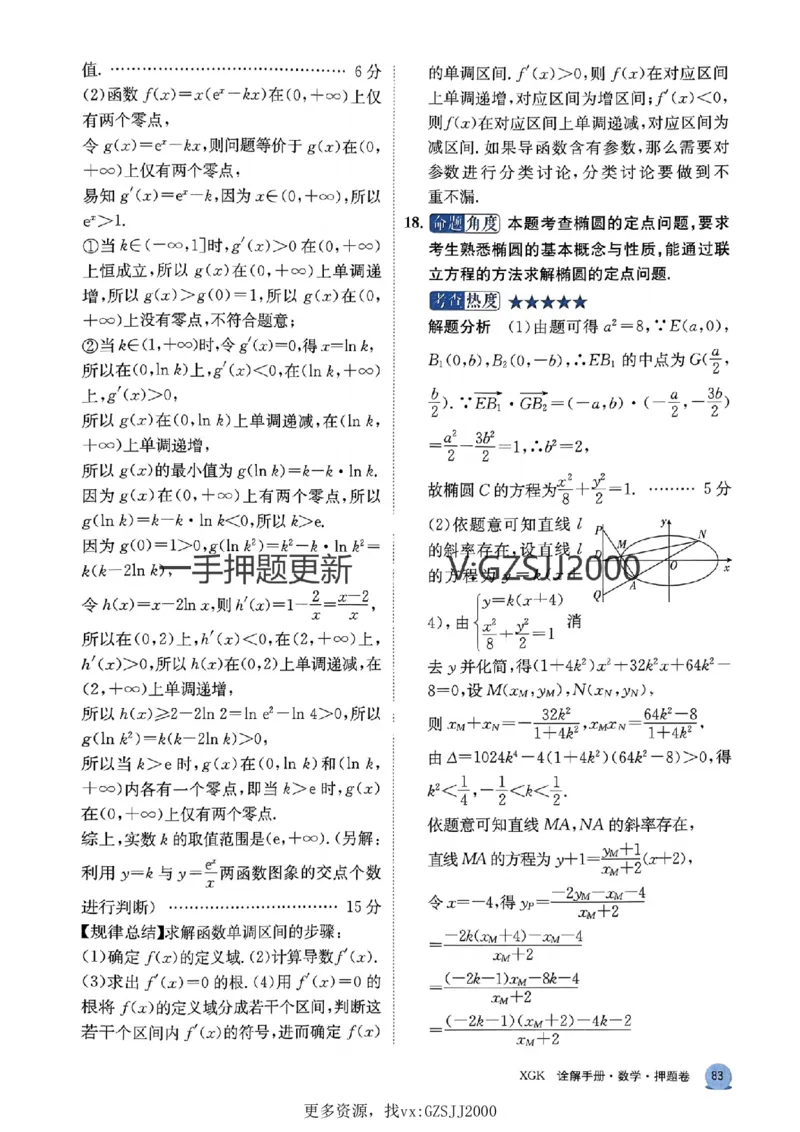 值. ……………………………… 6分
(2)函数 f(x)=x(eˣ-kx)在(0,+∞)上仅
有两个零点,
令 g(x)=eˣ-kx,则问题等价于 g(x)在(0,
+∞)上仅有两个零点,
易知 g′(x)=eˣ-k,因为 x∈(0,+∞),所以
eˣ>1.
①当 k∈(-∞,1]时,g′(x)>0 在(0,+∞)
上恒成立,所以 g(x)在(0,+∞)上单调递
增,所以 g(x)>g(0)=1,所以 g(x)在(0,
+∞)上没有零点,不符合题意;
②当 k∈(1,+∞)时,令 g′(x)=0,得 x=ln k,
所以在(0,ln k)上,g′(x)<0,在(ln k,+∞)
上,g′(x)>0,
所以 g(x)在(0,ln k)上单调递减,在(ln k,
+∞)上单调递增,
所以 g(x)的最小值为 g(ln k)=k-k·ln k.
因为 g(x)在(0,+∞)上有两个零点,所以
g(ln k)=k-k·ln k<0,所以 k>e.
因为 g(0)=1>0,g(ln k²)=k²-k·ln k²=
k(k-2ln k),
令 h(x)=x-2ln x,则 h′(x)=1-2/x=(x-2)/x,
所以在(0,2)上,h′(x)<0,在(2,+∞)上,
h′(x)>0,所以 h(x)在(0,2)上单调递减,在
(2,+∞)上单调递增,
所以 h(x)≥2-2ln 2=ln e²-ln 4>0,所以
g(ln k²)=k(k-2ln k)>0,
所以当 k>e 时,g(x)在(0,ln k)和(ln k,
+∞)内各有一个零点,即当 k>e 时,g(x)
在(0,+∞)上仅有两个零点.
综上,实数 k 的取值范围是(e,+∞).(另解:
利用 y=k 与 y=eˣ/x 两函数图象的交点个数
进行判断) ……………………………… 15分
【规律总结】求解函数单调区间的步骤:
(1)确定 f(x)的定义域.(2)计算导数f′(x).
(3)求出 f′(x)=0 的根.(4)用 f′(x)=0 的
根将 f(x)的定义域分成若干个区间,判断这
若干个区间内 f′(x)的符号,进而确定 f(x)
的单调区间. f′(x)>0,则 f(x)在对应区间
上单调递增,对应区间为增区间;f′(x)<0,
则f(x)在对应区间上单调递减,对应区间为
减区间. 如果导函数含有参数,那么需要对
参数进行分类讨论,分类讨论要做到不
重不漏.
18. 命题角度 本题考查椭圆的定点问题,要求
考生熟悉椭圆的基本概念与性质,能通过联
立方程的方法求解椭圆的定点问题.
考查热度 ★★★★★
解题分析 (1)由题可得 a²=8,∵E(a,0),
B₁(0,b),B₂(0,-b),∴EB₁ 的中点为 G(a/2,
b/2). ∵EB₁→·GB₂→=(-a,b)·(-a/2,-3b/2)
=a²/2-3b²/2=1,∴b²=2,
故椭圆 C 的方程为 x²/8+y²/2=1. ……… 5分
(2)依题意可知直线 l
的斜率存在,设直线 l
的方程为 y=k(x+
4),由{y=k(x+4) x²/8+y²/2=1 消
P
D
M
y
N
O
x
A
Q
去 y 并化简,得(1+4k²)x²+32k²x+64k²-
8=0,设 M(x_M,y_M),N(x_N,y_N),
则 x_M+x_N=-32k²/(1+4k²),x_Mx_N=(64k²-8)/(1+4k²),
由 Δ=1024k⁴-4(1+4k²)(64k²-8)>0,得
k²<1/4,-1/2<k<1/2.
依题意可知直线 MA,NA 的斜率存在,
直线 MA 的方程为 y+1=(y_M+1)/(x_M+2)(x+2),
令 x=-4,得 y_P=(-2y_M-x_M-4)/(x_M+2)
=(-2k(x_M+4)-x_M-4)/(x_M+2)
=((-2k-1)x_M-8k-4)/(x_M+2)
=((-2k-1)(x_M+2)-4k-2)/(x_M+2)
一手押题更新
V:GZSJJ2000
XGK 诠解手册·数学·押题卷 83
更多资源, 找vx:GZSJJ2000